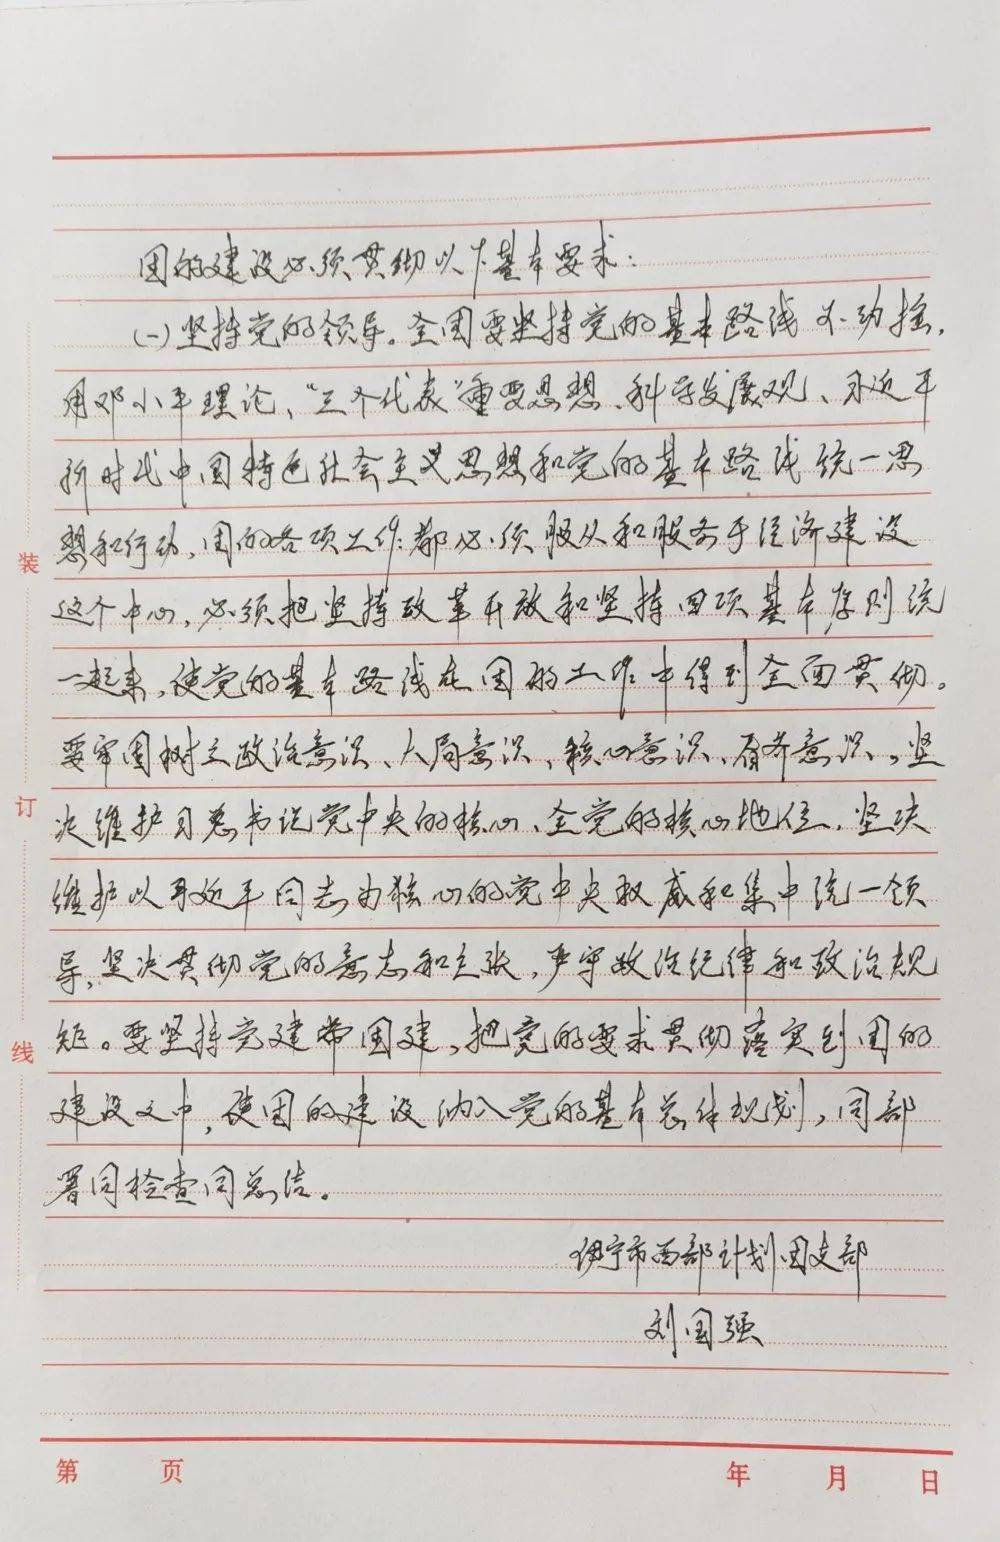 团的建设必须贯彻以下基本要求：
(一)坚持党的领导。全团要坚持党的基本路线不动摇，
用邓小平理论、“三个代表”重要思想、科学发展观、习近平
新时代中国特色社会主义思想和党的基本路线统一思
想和行动，团的各项工作都必须服从和服务于经济建设
这个中心，必须把坚持改革开放和坚持四项基本原则统
一起来，使党的基本路线在团的工作中得到全面贯彻。
要牢固树立政治意识、大局意识、核心意识、看齐意识，坚
决维护习总书记党中央的核心、全党的核心地位，坚决
维护以习近平同志为核心的党中央权威和集中统一领
导，坚决贯彻党的意志和主张，严守政治纪律和政治规
矩。要坚持党建带团建，把党的要求贯彻落实到团的
建设之中，使团的建设纳入党的基本总体规划，同部
署同检查同总结。
伊宁市西部计划团支部
刘国强
装
订
线
第 页 年 月 日